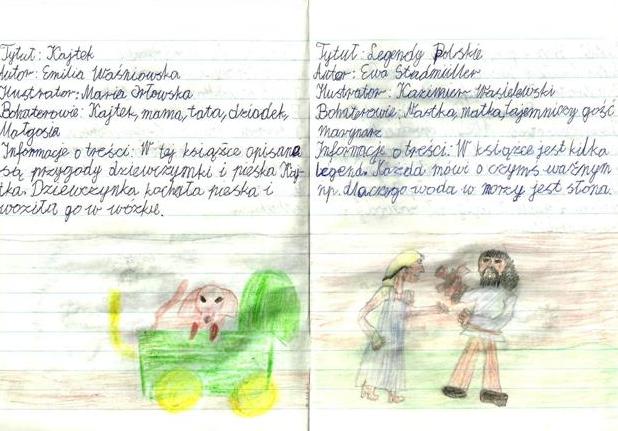 Tytuł: Kajtek
Autor: Emilia Waśniowska
Ilustrator: Maria Orłowska
Bohaterowie: Kajtek, mama, tata, dziadek,
Małgosia
Informacje o treści: W tej książce opisane
są przygody dziewczynki i pieska Kaj-
tka. Dziewczynka kochała pieska i
woziła go w wózku.
Tytuł: Legendy Polskie
Autor: Ewa Stadmüller
Ilustrator: Kazimierz Wasielewski
Bohaterowie: Nastka, matka, tajemniczy gość
marynarz
Informacje o treści: W książce jest kilka
legend. Każda mówi o czymś ważnym
np. dlaczego woda w morzu jest słona.